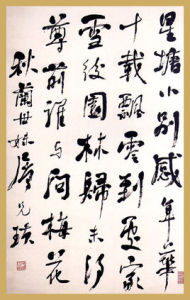 星塘小别感年華
十載飄零到處家
雪後園林歸未得
尊前誰与问梅花
秋蘭世妹